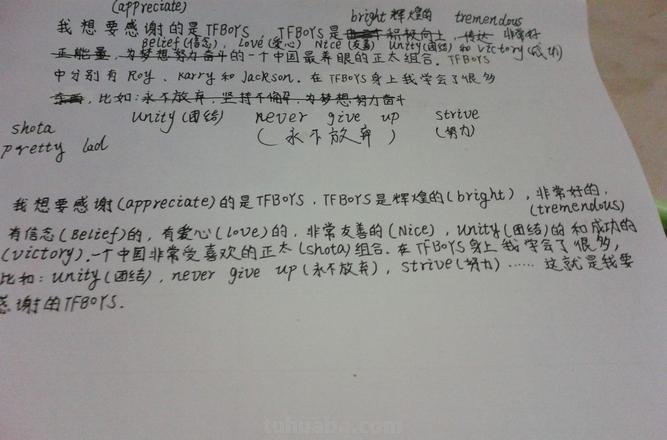 (appreciate)
bright 辉煌的 tremendous
我想要感谢的是TFBOYS TFBOYS是 积极向上,传达 非常好
Belief(信念), Love(爱心) Nice(友善) Unity(团结)和victory(成功)
正能量,为梦想努力奋斗的一个中国最养眼的正太组合. TFBOYS
中分别有Roy、Karry和Jackson. 在TFBOYS身上我学会了很多
东西,比如:永不放弃,坚持不懈,为梦想努力奋斗
Unity(团结) never give up strive
shota (永不放弃) (努力)
pretty lad
我想要感谢(appreciate)的是TFBOYS. TFBOYS是辉煌的(bright),非常好的,
(tremendous)
有信念(Belief)的,有爱心(Love)的,非常友善的(Nice),Unity(团结)的和成功的
(victory).一个中国非常受喜欢的正太(shota)组合.在TFBOYS身上我学会了很多,
比如:Unity(团结),never give up(永不放弃),strive(努力)……这就是我要
感谢的TFBOYS.
tuhuaba.com